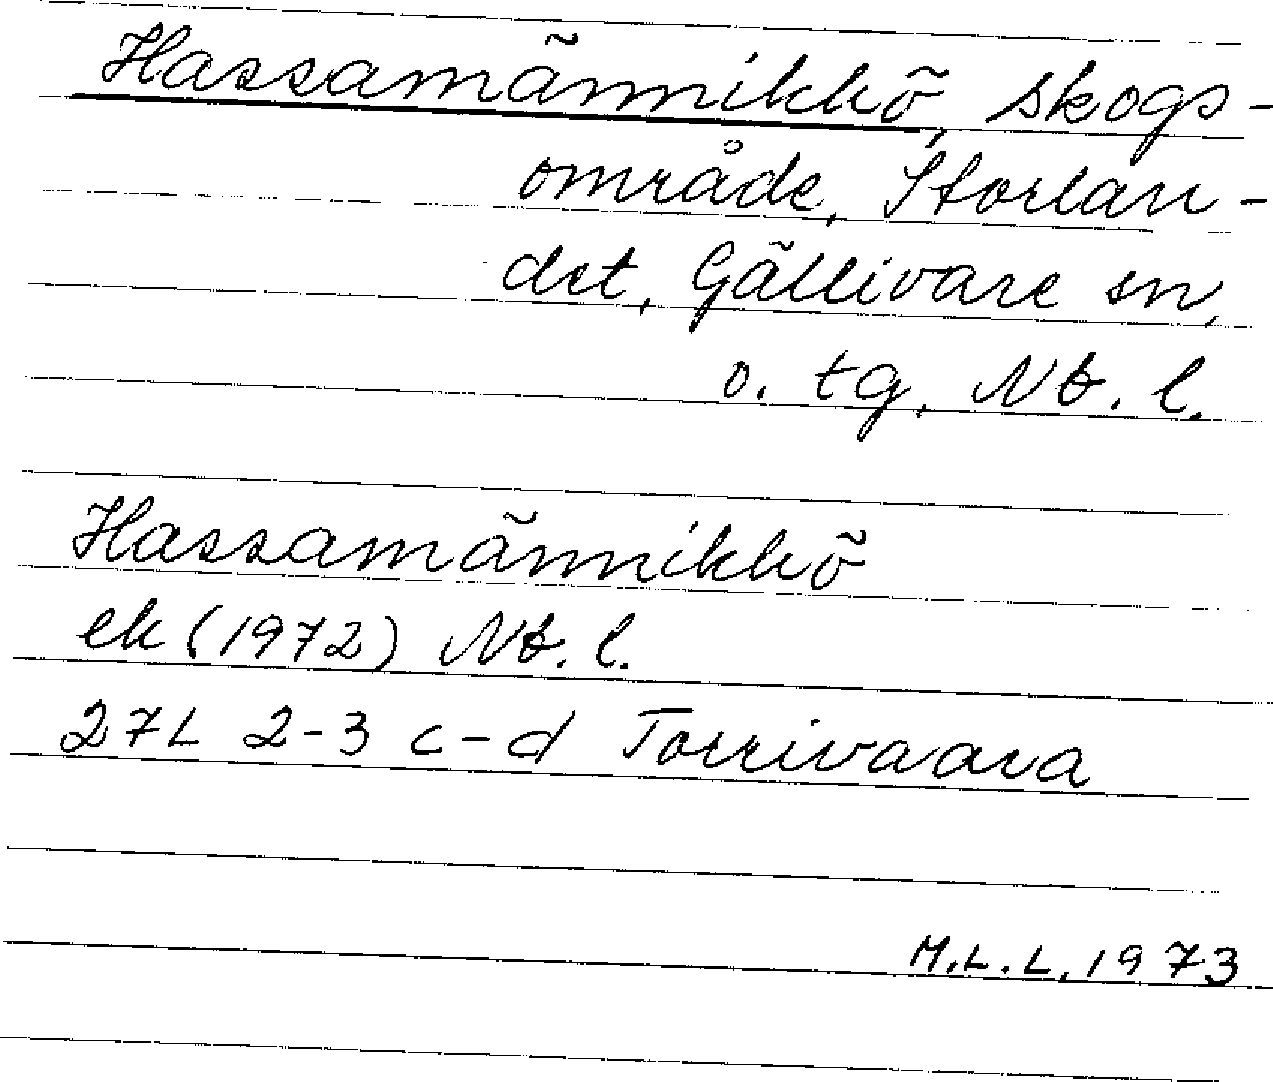 Hassamännikkö, skogs-
område, Storlan-
det, Gällivare sn,
o. tg, Nb. l.
Hassamännikkö
ek (1972) Nb. l.
27L 2-3 c-d Torrivaara
M.L.L, 1973